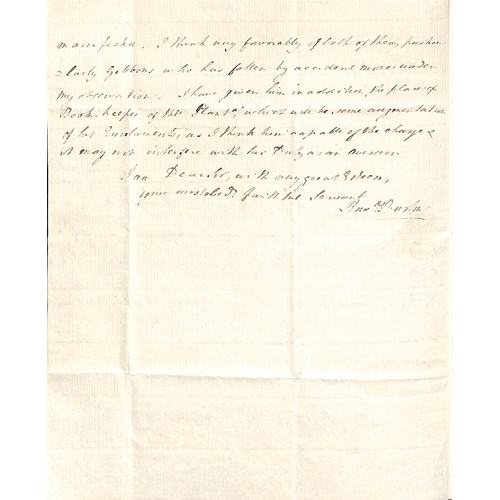 manifested. I think very favorably of both of them, particu
=larly Gibbons who has fallen by accident more under
my observation. I have given him in addition, the place of
Book-keeper of the Plant.n which will be some augmentation
of his Emoluments, as I think him capable of the charge &
it may not interfere with his Duty as an overseer.
I am Dear Sir, with very great Esteem,
your most obed.t & faithful Servant